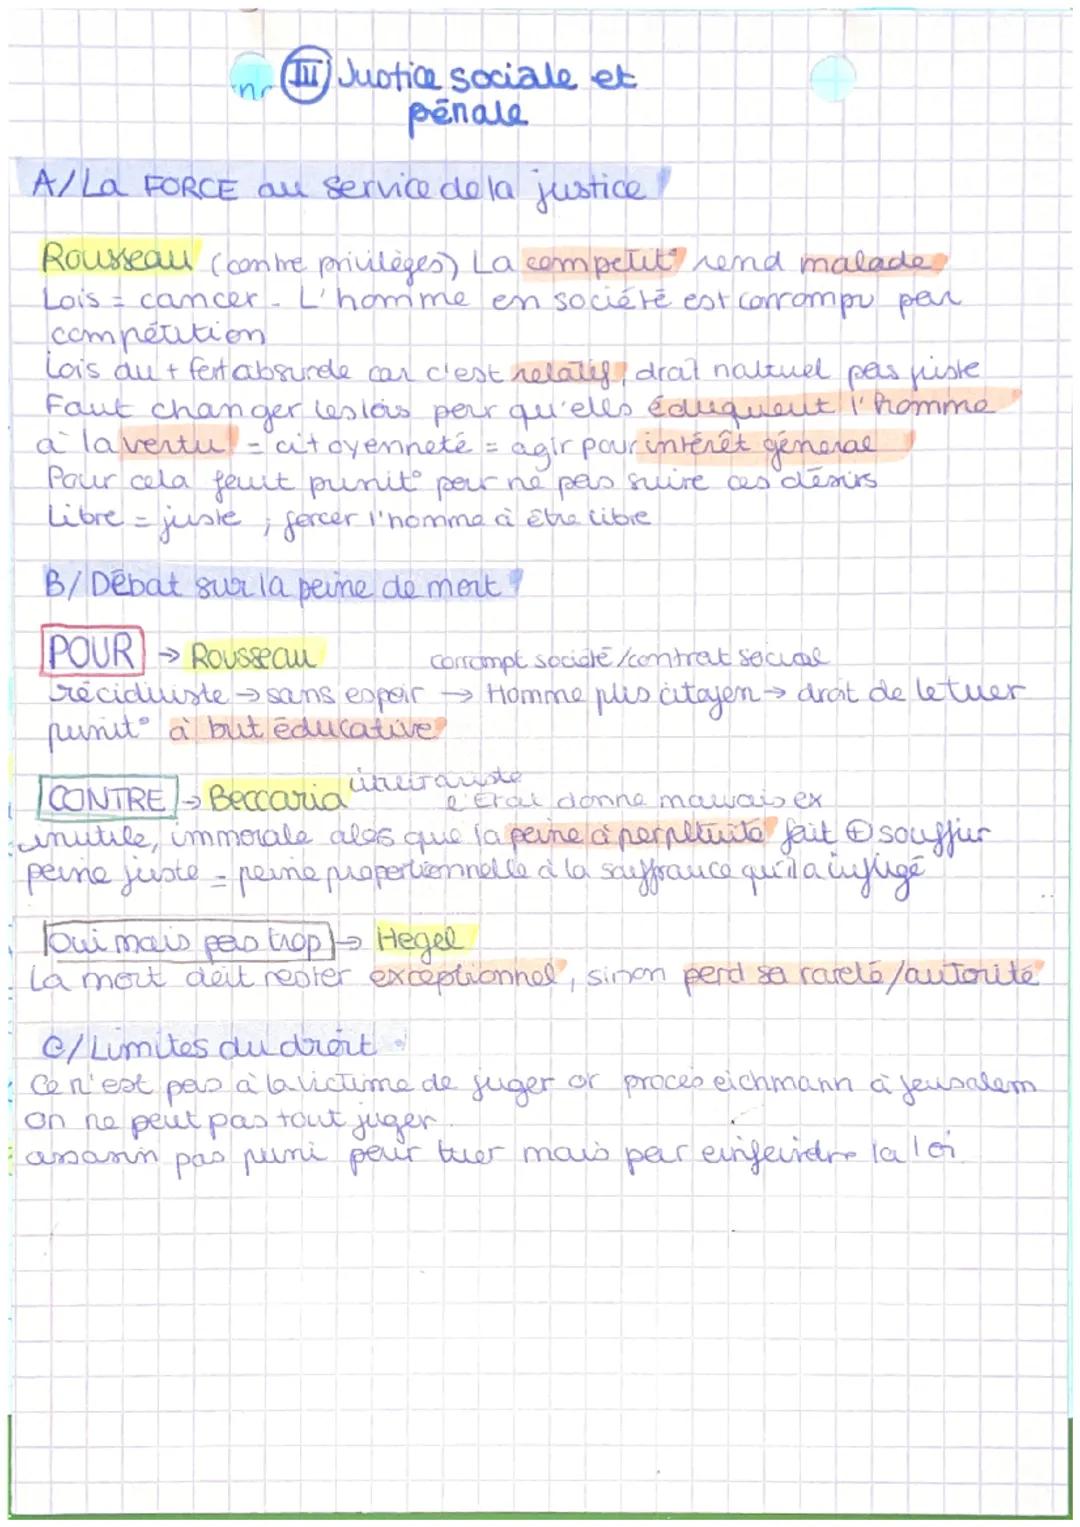 III Justice sociale et
pénale
A/ La FORCE au service de la justice
Rousseau (contre privilèges) La compétit° rend malade
Lois = cancer - L'homme en société est corrompu par
compétition
Lois du + fort absurde car c'est relatif, droit naturel pas juste
Faut changer les lois pour qu'elles éduquent l'homme
à la vertu = citoyenneté = agir pour intérêt général
Pour cela faut punit° pour ne pas suivre ces désirs
Libre = juste ; forcer l'homme à être libre
B/ Débat sur la peine de mort
POUR → Rousseau
corrompt société/contrat social
récidiviste → sans espoir → Homme plus citoyen → droit de le tuer
punit° à but éducative
CONTRE → Beccaria
l'État donne mauvais ex
inutile, immorale alors que la peine à perpétuité fait ⊕ souffrir
peine juste = peine proportionnelle à la souffrance qu'il a infligé
Oui mais pas trop → Hegel
La mort doit rester exceptionnel, sinon perd sa rareté/autorité
C/ Limites du droit
Ce n'est pas à la victime de juger or procès eichmann à jerusalem
on ne peut pas tout juger
assassin pas puni pour tuer mais par enfeindre la loi